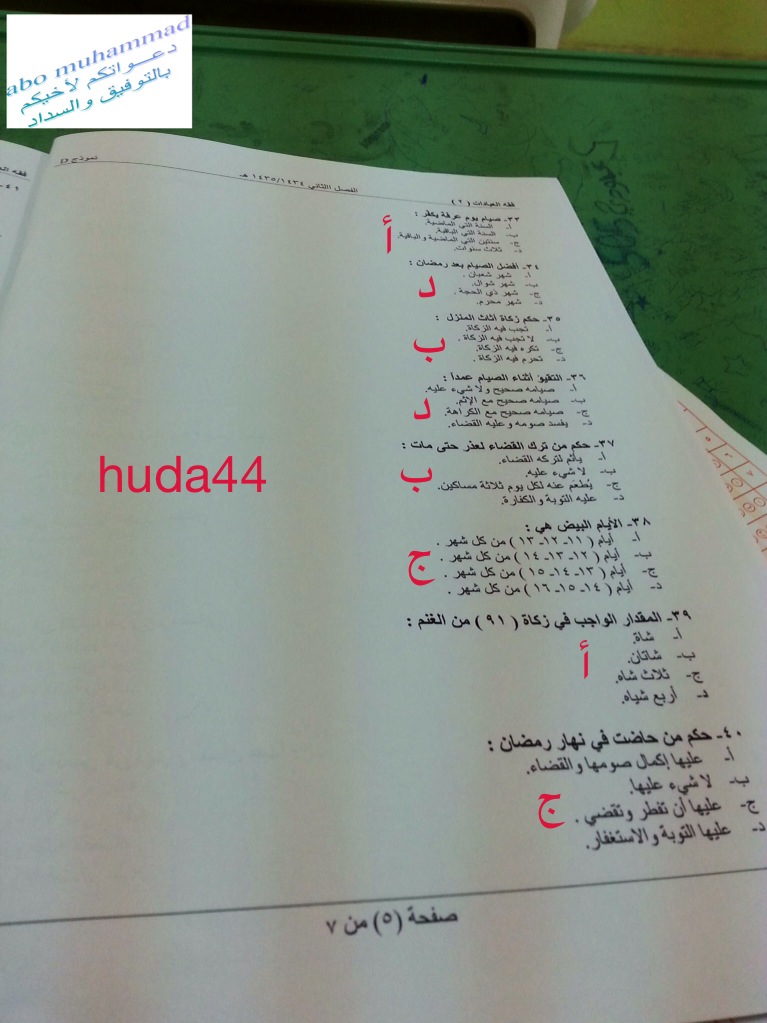 abo muhammad
دعــواتكم لأخيكم
بالتوفيق والسداد
فقه العبادات ( ٢ )
الفصل الثاني ١٤٣٥/١٤٣٤ هـ
نموذج D
٣٣- صيام يوم عرفة يكفر :
أ- السنة التي الماضية.
ب- السنة التي الباقية.
ج- سنتين التي الماضية والباقية.
د- ثلاث سنوات.
أ
٣٤- أفضل الصيام بعد رمضان :
أ- شهر شعبان .
ب- شهر شوال.
ج- شهر ذي الحجة .
د- شهر محرم.
د
٣٥- حكم زكاة أثاث المنزل :
أ- تجب فيه الزكاة.
ب- لا تجب فيه الزكاة .
ج- تكره فيه الزكاة.
د- تحرم فيه الزكاة .
ب
٣٦- التقيؤ أثناء الصيام عمداً :
أ- صيامه صحيح ولا شيء عليه.
ب- صيامه صحيح مع الإثم.
ج- صيامه صحيح مع الكراهة.
د- يفسد صومه وعليه القضاء.
د
٣٧- حكم من ترك القضاء لعذر حتى مات :
أ- يأثم لتركه القضاء.
ب- لا شيء عليه.
ج- يُطعَم عنه لكل يوم ثلاثة مساكين.
د- عليه التوبة والكفارة.
ب
huda44
٣٨- الأيام البيض هي :
أ- أيام ( ١١- ١٢- ١٣ ) من كل شهر .
ب- أيام ( ١٢- ١٣- ١٤ ) من كل شهر .
ج- أيام ( ١٣- ١٤- ١٥ ) من كل شهر .
د- أيام ( ١٤- ١٥- ١٦ ) من كل شهر .
ج
٣٩- المقدار الواجب في زكاة ( ٩١ ) من الغنم :
أ- شاة.
ب- شاتان.
ج- ثلاث شاه.
د- أربع شياه.
أ
٤٠- حكم من حاضت في نهار رمضان :
أ- عليها إكمال صومها والقضاء.
ب- لا شيء عليها.
ج- عليها أن تفطر وتقضي .
د- عليها التوبة والاستغفار.
ج
صفحة (٥) من ٧